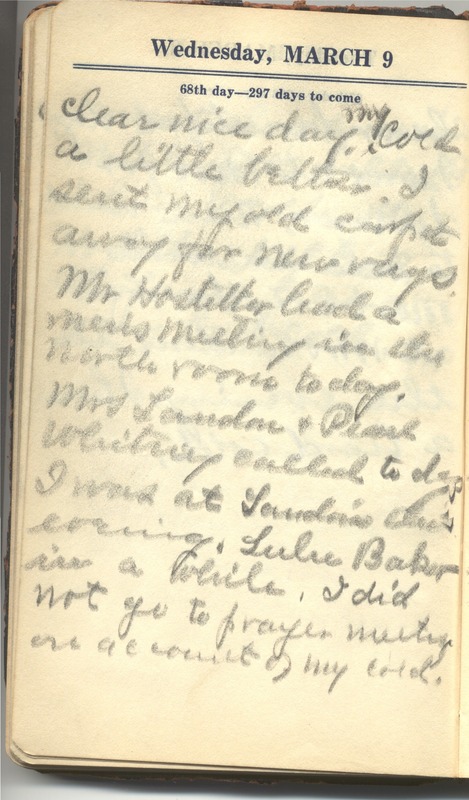 Wednesday, MARCH 9
68th day—297 days to come
clear nice day. my cold
a little better I
sent my old carpet
away for new rugs.
Mr Hostetter had a
men's meeting in the
North room today.
Mrs Landon + Pearl
Whitney called to day
I was at Landon's this
evening. Lulu Baker
in a while. I did
not go to prayer meeting
on account of my cold.